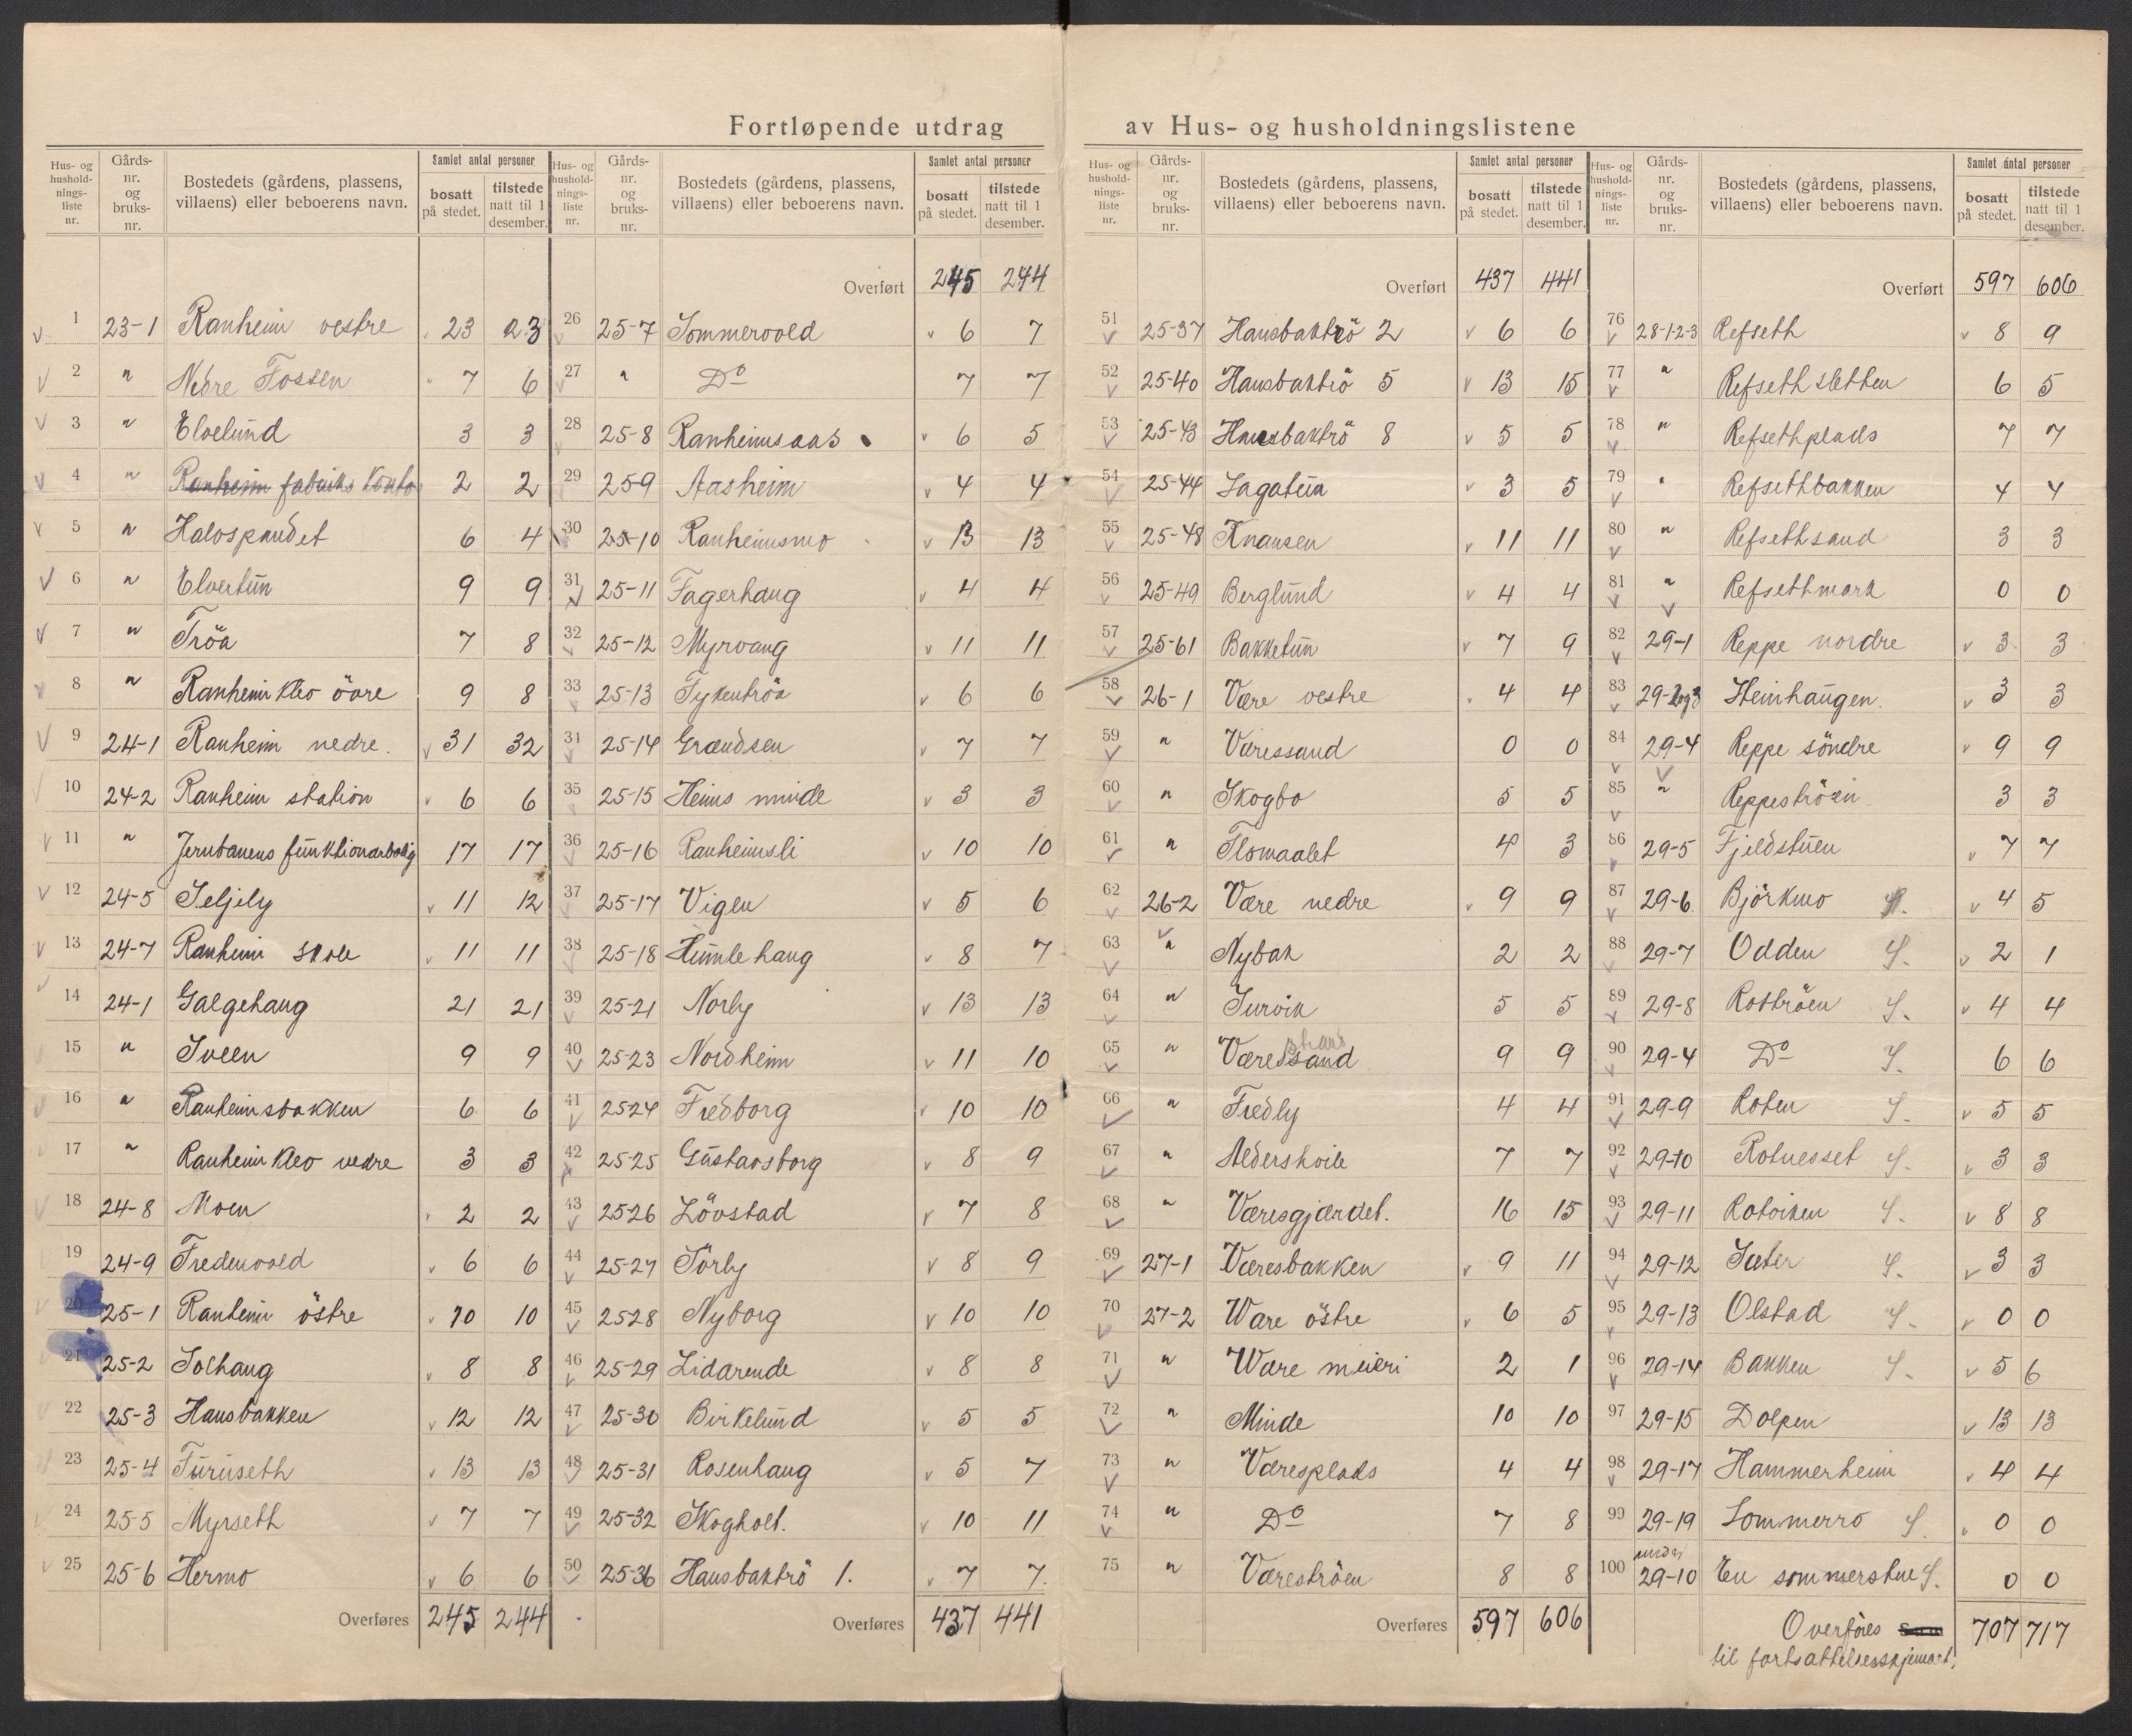 Fortløpende utdrag av Hus- og husholdningslistene
Hus- og husholdnings-liste nr. Gårds-nr. og bruks-nr. Bostedets (gårdens, plassens, villaens) eller beboerens navn. Samlet antal personer bosatt på stedet. tilstede natt til 1 desember.
1 23-1 Ranheim vestre 23 23
2 " Nedre Fossen 7 6
3 " Elvelund 3 3
4 " Ranheim fabriks Kontor 2 2
5 " Halvspandet 6 4
6 " Elvertun 9 9
7 " Tröa 7 8
8 " Ranheim Klev övre 9 8
9 24-1 Ranheim nedre. 31 32
10 24-2 Ranheim station 6 6
11 " Jernbanens funktionærbolig 17 17
12 24-5 Seljely 11 12
13 24-7 Ranheim skole 11 11
14 24-1 Galgehaug 21 21
15 " Sveen 9 9
16 " Ranheimsbakken 6 6
17 " Ranheim Klev nedre 3 3
18 24-8 Moen 2 2
19 24-9 Fredenvold 6 6
20 25-1 Ranheim östre 10 10
21 25-2 Solhaug 8 8
22 25-3 Hansbakken 12 12
23 25-4 Furuseth 13 13
24 25-5 Myrseth 7 7
25 25-6 Hermo 6 6
Overføres 245 244
Hus- og husholdnings-liste nr. Gårds-nr. og bruks-nr. Bostedets (gårdens, plassens, villaens) eller beboerens navn. Samlet antal personer bosatt på stedet. tilstede natt til 1 desember.
Overført 245 244
26 25-7 Sommervold 6 7
27 " Do 7 7
28 25-8 Ranheimsaas 6 5
29 25-9 Aasheim 4 4
30 25-10 Ranheimsmo 13 13
31 25-11 Fagerhaug 4 4
32 25-12 Myrvang 11 11
33 25-13 Tykentröa 6 6
31 25-14 Grændsen 7 7
35 25-15 Heims minde 3 3
36 25-16 Ranheimsli 10 10
37 25-17 Vigen 5 6
38 25-18 Humlehaug 8 7
39 25-21 Norby 13 13
40 25-23 Nordheim 11 10
41 25-24 Fredborg 10 10
42 25-25 Gustavsborg 8 9
43 25-26 Lövstad 7 8
44 25-27 Sörby 8 9
45 25-28 Nyborg 10 10
46 25-29 Lidarende 8 8
47 25-30 Birkelund 5 5
48 25-31 Rosenhaug 5 7
49 25-32 Skogholt. 10 11
50 25-36 Hansbaktrö 1. 7 7.
Overføres 437 441
Hus- og husholdnings-liste nr. Gårds-nr. og bruks-nr. Bostedets (gårdens, plassens, villaens) eller beboerens navn. Samlet antal personer bosatt på stedet. tilstede natt til 1 desember.
Overført 437 441
51 25-37 Hansbaktrö 2 6 6
52 25-40 Hansbaktrö 5 13 15
53 25-43 Hansbaktrö 8 5 5
54 25-44 Lagatun 3 5
55 25-48 Knausen 11 11
56 25-49 Berglund 4 4
57 25-61 Bakketun 7 9
58 26-1 Være vestre 4 4
59 " Væressand 0 0
60 " Skogbo 5 5
61 " Flomaalet 4 3
62 26-2 Være nedre 9 9
63 " Nybak 2 2
64 " Survik 5 5
65 " Væressand strand 9 9
66 " Fredly 4 4
67 " Alderskvile 7 7
68 " Væresgjærdet. 16 15
69 27-1 Væresbakken 9 11
70 27-2 Wære östre 6 5
71 " Wære meieri 2 1
72 " Minde 10 10
73 " Væresplads 4 4
74 " Do 7 8
75 " Væreströen 8 8
Overføres 597 606
Hus- og husholdnings-liste nr. Gårds-nr. og bruks-nr. Bostedets (gårdens, plassens, villaens) eller beboerens navn. Samlet antal personer bosatt på stedet. tilstede natt til 1 desember.
Overført 597 606
76 28-1-2-3 Refseth 8 9
77 " Refseth sletten 6 5
78 " Refsethplads 7 7
79 " Refsethbakken 4 4
80 " Refsethsand 3 3
81 " Refsethmark 0 0
82 29-1 Reppe nordre 3 3
83 29-2og3 Steinhaugen. 3 3
84 29-4 Reppe söndre 9 9
85 " Reppeströen 3 3
86 29-5 Fjeldstuen 7 7
87 29-6 Björkmo 4 5
88 29-7 Odden S. 2 1
89 29-8 Roströen S. 4 4
90 29-4 Do S. 6 6
91 29-9 Roten S. 5 5
92 29-10 Rotnesset S. 3 3
93 29-11 Rotviken S. 8 8
94 29-12 Sæter S. 3 3
95 29-13 Olstad S. 0 0
96 29-14 Bakken S. 5 6
97 29-15 Dolpen 13 13
98 29-17 Hammerheim 4 4
99 29-19 Sommerro S. 0 0
100 under 29-10 En sommerstue S. 0 0
Overføres Sum 707 717
til fortsættelsesskjemaet.